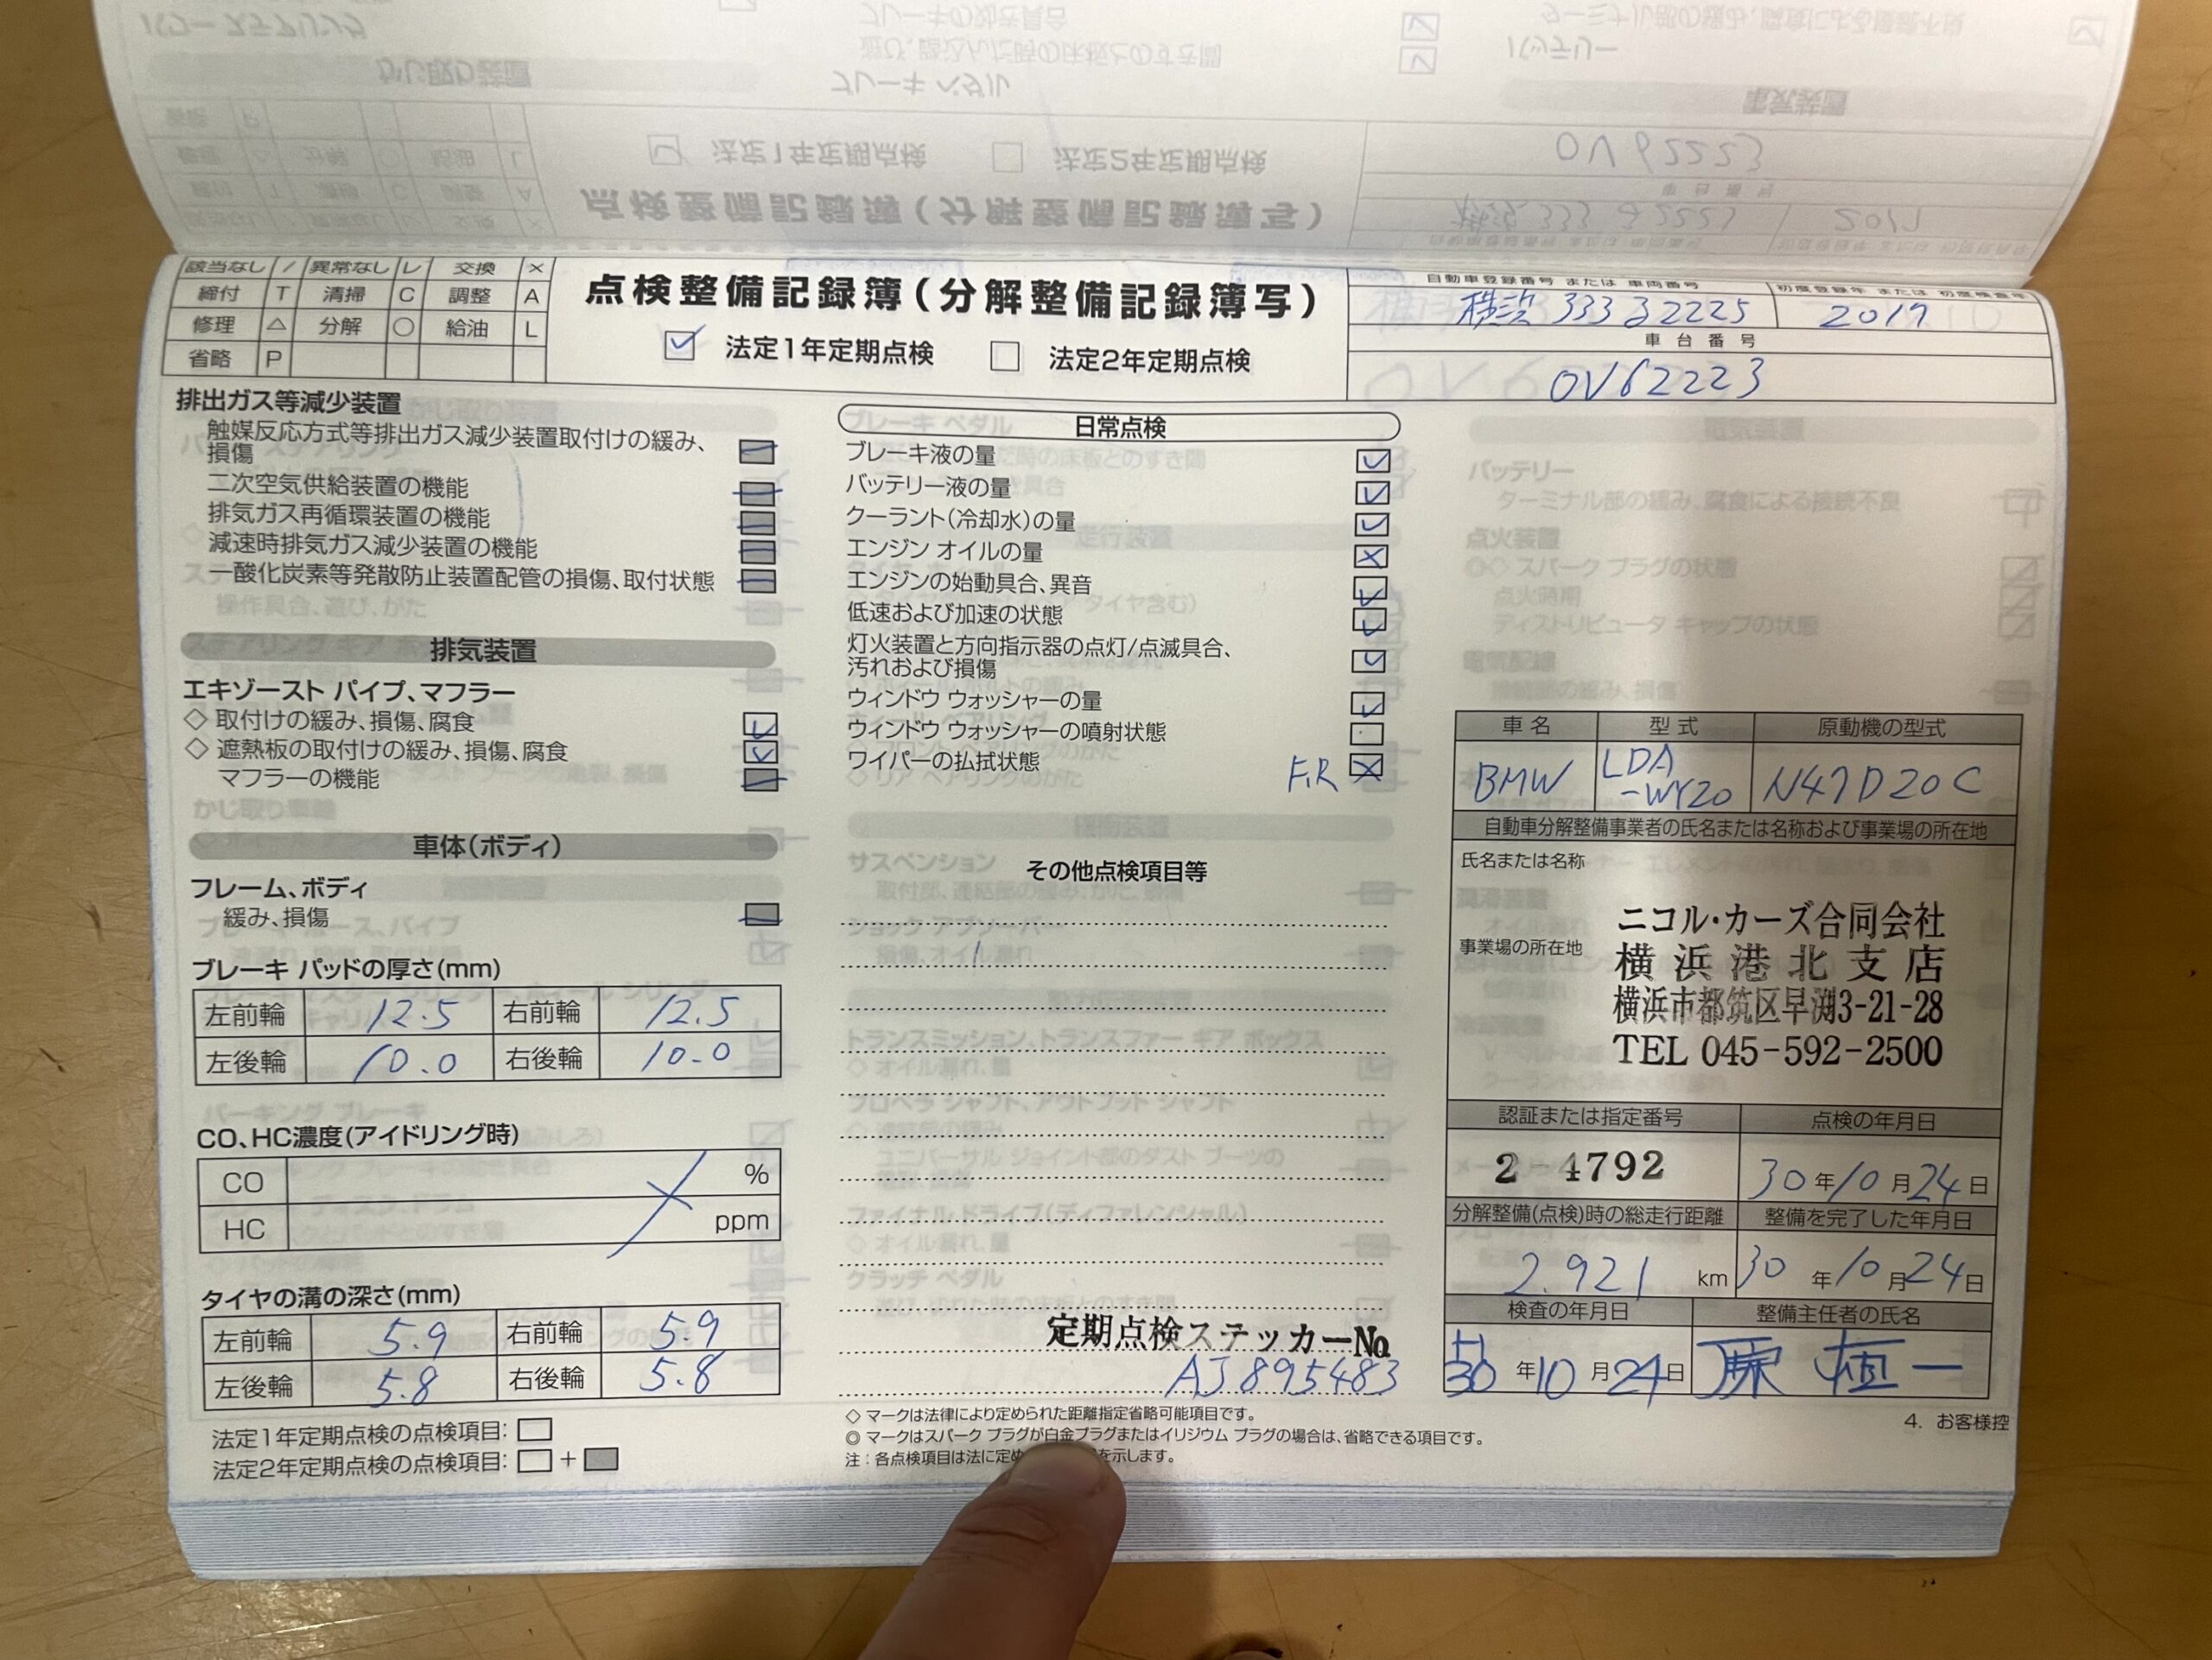 該当なし / 異常なし レ 交換 ×
締付 T 清掃 C 調整 A
修理 △ 分解 ○ 給油 L
省略 P
点検整備記録簿(分解整備記録簿写)
法定1年定期点検 法定2年定期点検
自動車登録番号 または 車両番号 初度登録年 または 初度検査年
横浜 333 2225 2017
車台番号
0V62223
排出ガス等減少装置
触媒反応方式等排出ガス減少装置取付けの緩み、
損傷
二次空気供給装置の機能
排気ガス再循環装置の機能
減速時排気ガス減少装置の機能
一酸化炭素等発散防止装置配管の損傷、取付状態
排気装置
エキゾースト パイプ、マフラー
◇ 取付けの緩み、損傷、腐食
◇ 遮熱板の取付けの緩み、損傷、腐食
マフラーの機能
車体(ボディ)
フレーム、ボディ
緩み、損傷
ブレーキ パッドの厚さ(mm)
左前輪 12.5 右前輪 12.5
左後輪 10.0 右後輪 10.0
CO、HC濃度(アイドリング時)
CO %
HC ppm
タイヤの溝の深さ(mm)
左前輪 5.9 右前輪 5.9
左後輪 5.8 右後輪 5.8
法定1年定期点検の点検項目:
法定2年定期点検の点検項目: +
日常点検
ブレーキ液の量
バッテリー液の量
クーラント(冷却水)の量
エンジン オイルの量
エンジンの始動具合、異音
低速および加速の状態
灯火装置と方向指示器の点灯/点滅具合、
汚れおよび損傷
ウィンドウ ウォッシャーの量
ウィンドウ ウォッシャーの噴射状態
ワイパーの払拭状態 F,R
その他点検項目等
定期点検ステッカーNo
AJ895483
◇ マークは法律により定められた距離指定省略可能項目です。
◎ マークはスパーク プラグが白金プラグまたはイリジウム プラグの場合は、省略できる項目です。
注:各点検項目は法に定め を示します。
車名 型式 原動機の型式
BMW LDA-WY20 N47D20C
自動車分解整備事業者の氏名または名称および事業場の所在地
氏名または名称
ニコル・カーズ合同会社
事業場の所在地
横浜港北支店
横浜市都筑区早渕3-21-28
TEL 045-592-2500
認証または指定番号 点検の年月日
2-4792 30年10月24日
分解整備(点検)時の総走行距離 整備を完了した年月日
2.921 km 30年10月24日
検査の年月日 整備主任者の氏名
H30年10月24日 原 恒一
4. お客様控